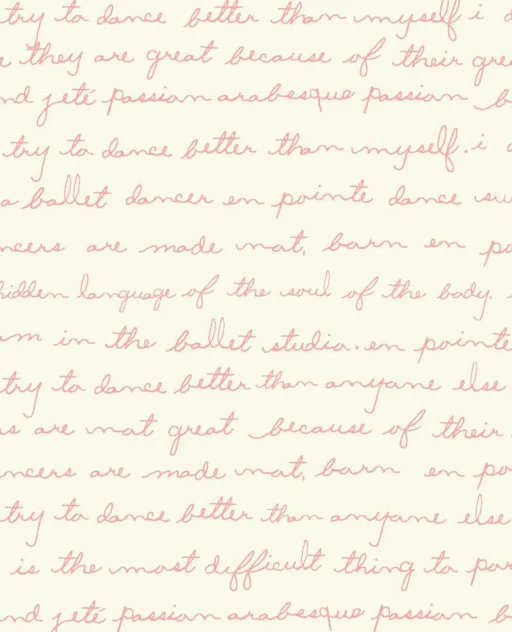 try to dance better than myself i
they are great because of their
jeté passion arabesque passion
try to dance better than myself. i
a ballet dancer en pointe dance
are made not, born en
hidden language of the soul of the body.
in the ballet studio. en pointe
try to dance better than anyone else
are not great because of their
are made not, born en
try to dance better than anyone else
is the most difficult thing to
jeté passion arabesque passion